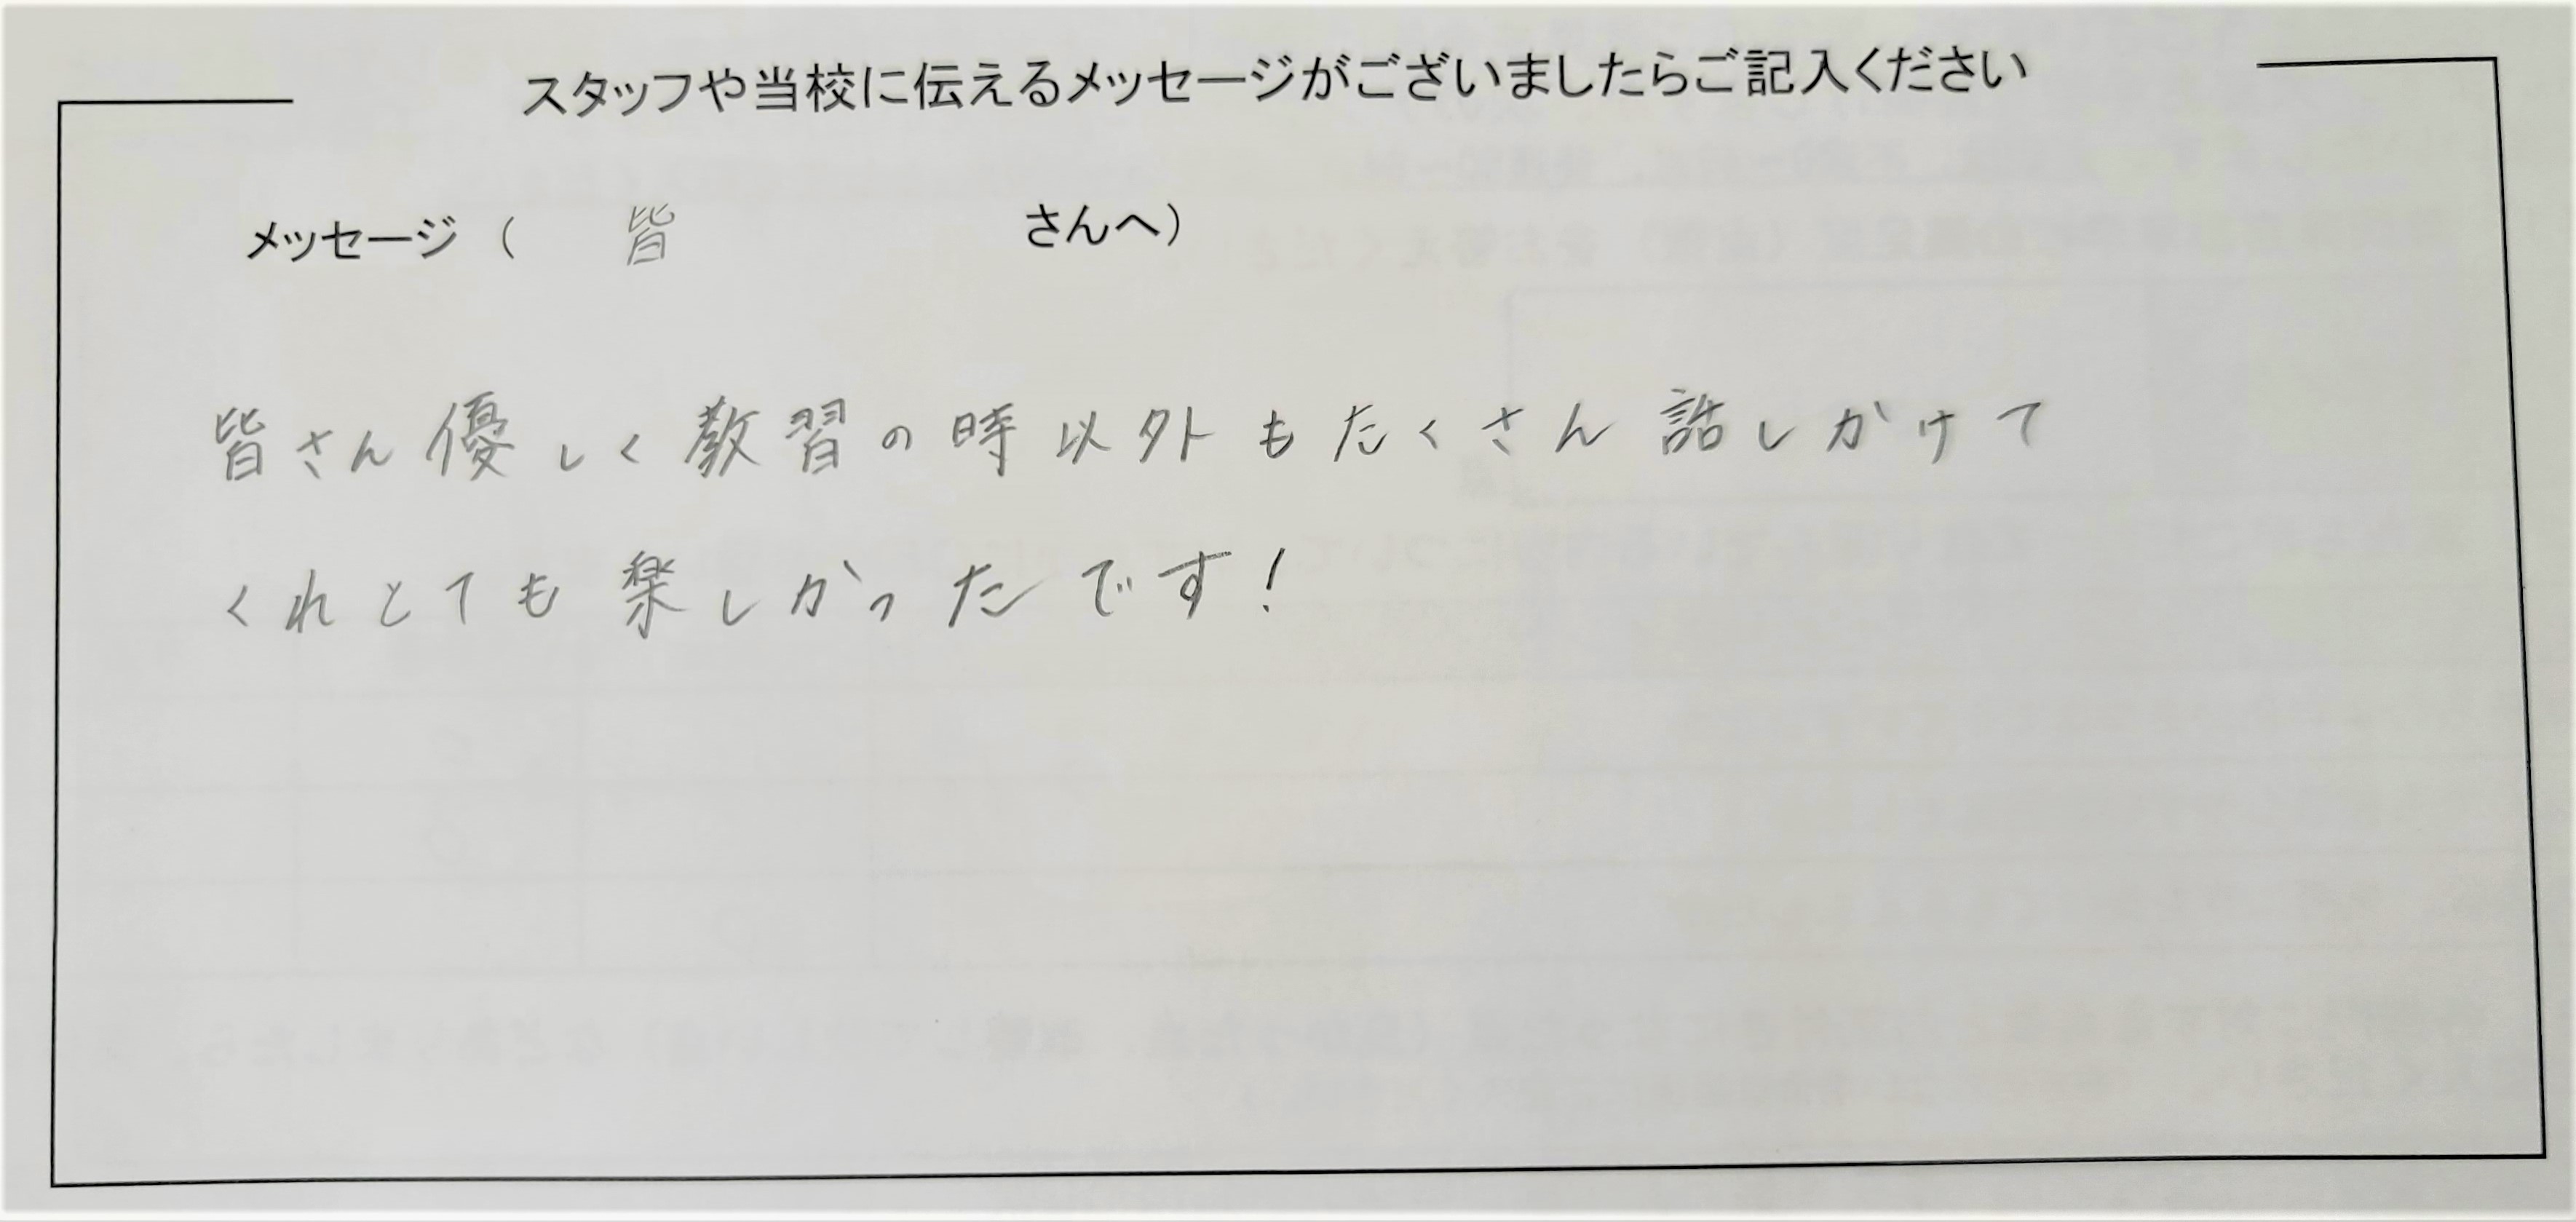 スタッフや当校に伝えるメッセージがございましたらご記入ください
メッセージ（　皆　さんへ）
皆さん優しく教習の時以外もたくさん話しかけて
くれとても楽しかったです！